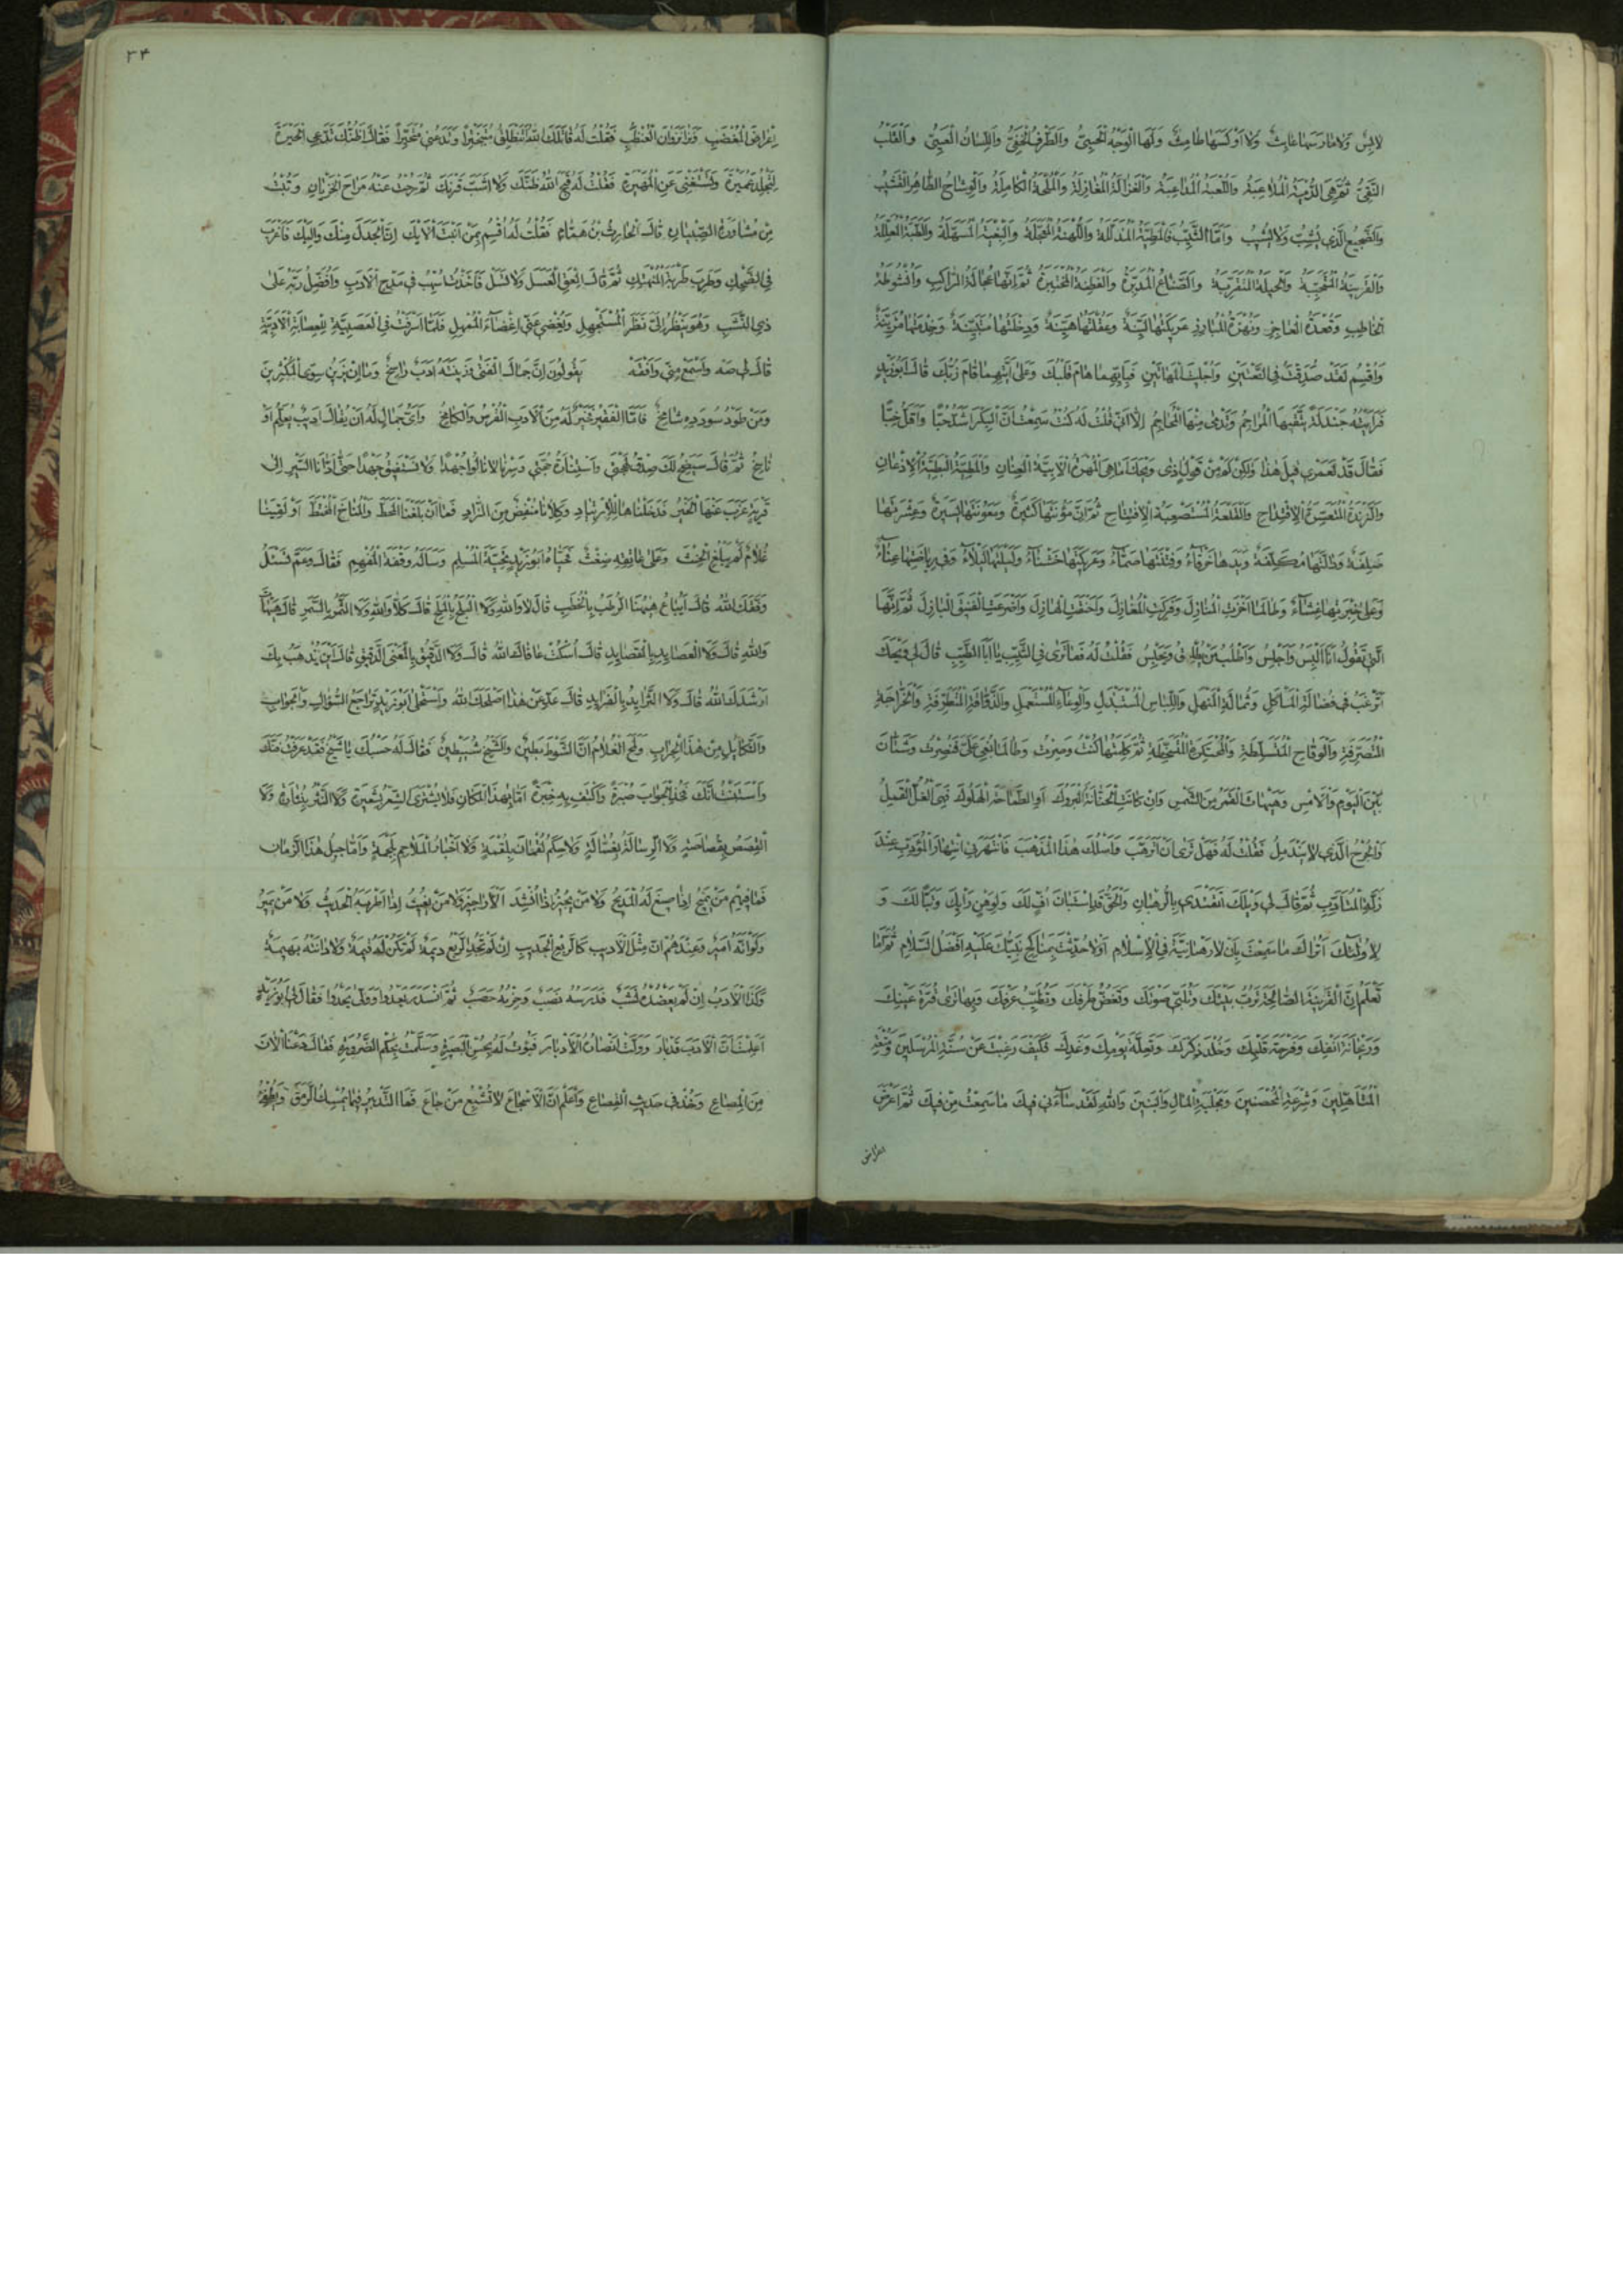 لابس ولا مارسها عابث ولا اوكسها طامث ولها الوجه الحيي والطرف الخفي واللسان العيي والقلب
النقي ثم هي الدمية الملاعبة واللعبة المداعبة والغزالة المغازلة والملحة الكاملة والوشاح الطاهر القشيب
والضجيع الذي يشب ولا يشيب واما الثيب فالمطية المذللة واللهنة المعجلة والبغية المسهلة والطبة المعللة
والقرينة المتحببة والخليلة المتقربة والصناع المدبرة والفطنة المختبرة ثم انها عجالة الراكب وانشوطة
الخاطب وقعدة العاجز ونهزة المبارز عريكتها لينة وعقلتها هينة ودخلتها متبينة وخدمتها مزينة
واقسم لقد صدقت في النعتين وجلبت المهاتين فبايهما هام قلبك وعلى ايتهما قام زبك قال ابو زيد
فرايته جندلة يتقيها المراجم وتدمى منها المحاجم الا اني قلت له كنت سمعت ان البكر اشد حبا واقل خبا
فقال قد لعمري قيل هذا ولكن كم من قول اذى ويحك اما هي المهرة الابية العنان والمطية البطية الاذعان
والزندة المتعسرة الاقتداح والقلعة المستصعبة الافتتاح ثم ان مؤنتها كثيرة ومعونتها يسيرة وعشرتها
صلفة ودالتها مكلفة ويدها خرقاء وفتنتها صماء وعريكتها خشناء وليلتها ليلاء وفي رياضتها عناء
وعلى خبرتها غشاء وطالما اخزت المنازل وفركت المغازل واحنقت الهازل واضرعت الفنيق البازل ثم انها
التي تقول انا البس واجلس واطلب من يطلق ويحبس فقلت له فما ترى في الثيب يا ابا الطيب قال لي ويحك
اترغب في فضالة الماكل وثمالة المنهل واللباس المستبذل والوعاء المستعمل والذواقة المتطرفة والخراجة
المتصرفة والوقاح المتسلطة والمحتكرة المتسخطة ثم كلمتها كنت وصرت وطالما بغي علي فنصرت وشتان
بين اليوم والامس وهيهات القمر من الشمس وان كانت الحنانة البروك او الطماحة الهلوك فهي الغل القمل
والجرح الذي لا يندمل فقلت له فهل ترى ان اترهب واسلك هذا المذهب فانتهرني انتهار المؤدب عند
زلة المتادب ثم قال لي ويلك اتقتدي بالرهبان والحق قد استبان اف لك ولوهن رايك وتبا لك و
لاولئك اتراك ما سمعت بان لا رهبانية في الاسلام او لا حدثت بمناكح نبيك عليه افضل السلام ثم اما
تعلم ان القرينة الصالحة ترب بيتك وتلبي صوتك وتغض طرفك وتطيب عرفك وبها ترى قرة عينك
وريحانة انفك وفرحة قلبك وخلد ذكرك وتعلة يومك وغدك فكيف رغبت عن سنة المرسلين ومتعة
المتاهلين وشرعة المحصنين ومجلبة المال والبنين والله لقد ساءني فيك ما سمعت من فيك ثم اعرض
اعراض
٣٤
اعراض المغضب ونزا نزوان العنظب فقلت له قاتلك الله اتنطلق متبخترا وتدعني متحيرا فقال اظنك تدعي الحيرة
لتجلد عميرة وتستغني عن المهيرة فقلت له قبح الله ظنك ولا اشب قرنك ثم رحت عنه مراح الخزيان وتبت
من مشاورة الصبيان قال الحارث بن همام فقلت له اقسم بمن انبت الايك ان الجدل منك واليك فاغرب
في الضحك وطرب طربة المنهمك ثم قال العق العسل ولا تسل فاخذت اسهب في مدح الادب وافضل ربه على
ذي النشب وهو ينظر الي نظر المستجهل ويغضي عني اغضاء المتمهل فلما اسرفت في العصبية للعصابة الادبية
قال لي صه واسمع مني وافقه يقولون ان جمال الفتى وزينته ادب راسخ وما ان يزين سوى المكثرين
ومن طود سودده شامخ فاما الفقير فخير له من الادب القرص والكامخ واي جمال له ان يقال اديب يعلم او
ناسخ ثم قال سيضح لك صدق لهجتي واستنارة حجتي وسرنا لا نالوا جهدا ولا نستفيق جهدا حتى ادانا السير الى
قرية عزب عنها الخير فدخلناها للارتياد وكلانا منفض من الزاد فما ان بلغنا المحط والمناخ المختط او لقينا
غلام لم يبلغ الحنث وعلى عاتقه ضغث فحياه ابو زيد تحية المسلم وساله وقفة المفهم فقال وعم تسئل
وفقك الله قال ايباع ههنا الرطب بالخطب قال لا والله ولا البلح بالملح قال كلا والله ولا الثمر بالسمر قال هيهات
والله قال ولا العصايد بالقصايد قال اسكت عافاك الله قال ولا الدقيق بالمعنى الدقيق قال اين يذهب بك
ارشدك الله قال ولا الثرايد بالفرايد قال عد عن هذا اصلحك الله واستحلى ابو زيد تراجع السؤال والجواب
والتكايل من هذا الجراب ولمح الغلام ان الشوط بطين والشيخ شيطين فقال له حسبك يا شيخ فقد عرفت فنك
واستبنت انك فخذ الجواب صبرة واكتف به خبرة اما بهذا المكان فلا يشترى الشعر بشعيرة ولا النثر بنثارة ولا
القصص بقصاصة ولا الرسالة بغسالة ولا حكم لقمان بلقمة ولا اخبار الملاحم بلحمة واما جيل هذا الزمان
فما فيهم من يميح اذا صيغ له المديح ولا من يجيز اذا انشد الاراجيز ولا من يغيث اذا اطربه الحديث ولا من يمير
ولو انه امير وعندهم ان مثل الاديب كالربع الجديب ان لم تجد الربع ديمة لم تكن له قيمة ولا دانته بهيمة
وكذا الادب ان لم يعضده نشب فدرسه نصب وحزبه حصب ثم انسدر يعدوا وولى يحدوا فقال لي ابو زيد
اعلمت ان الادب قد بار وولت انصاره الادبار فبؤت له بحسن البصيرة وسلمت بحكم الضرورة فقال دعنا الان
من المصاع وخذ في حديث القصاع واعلم ان الاسجاع لا تشبع من جاع فما التدبير فيما يمسك الرمق ويطفئ